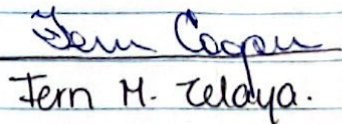 Fern Cooper
Fern M. Zelaya.